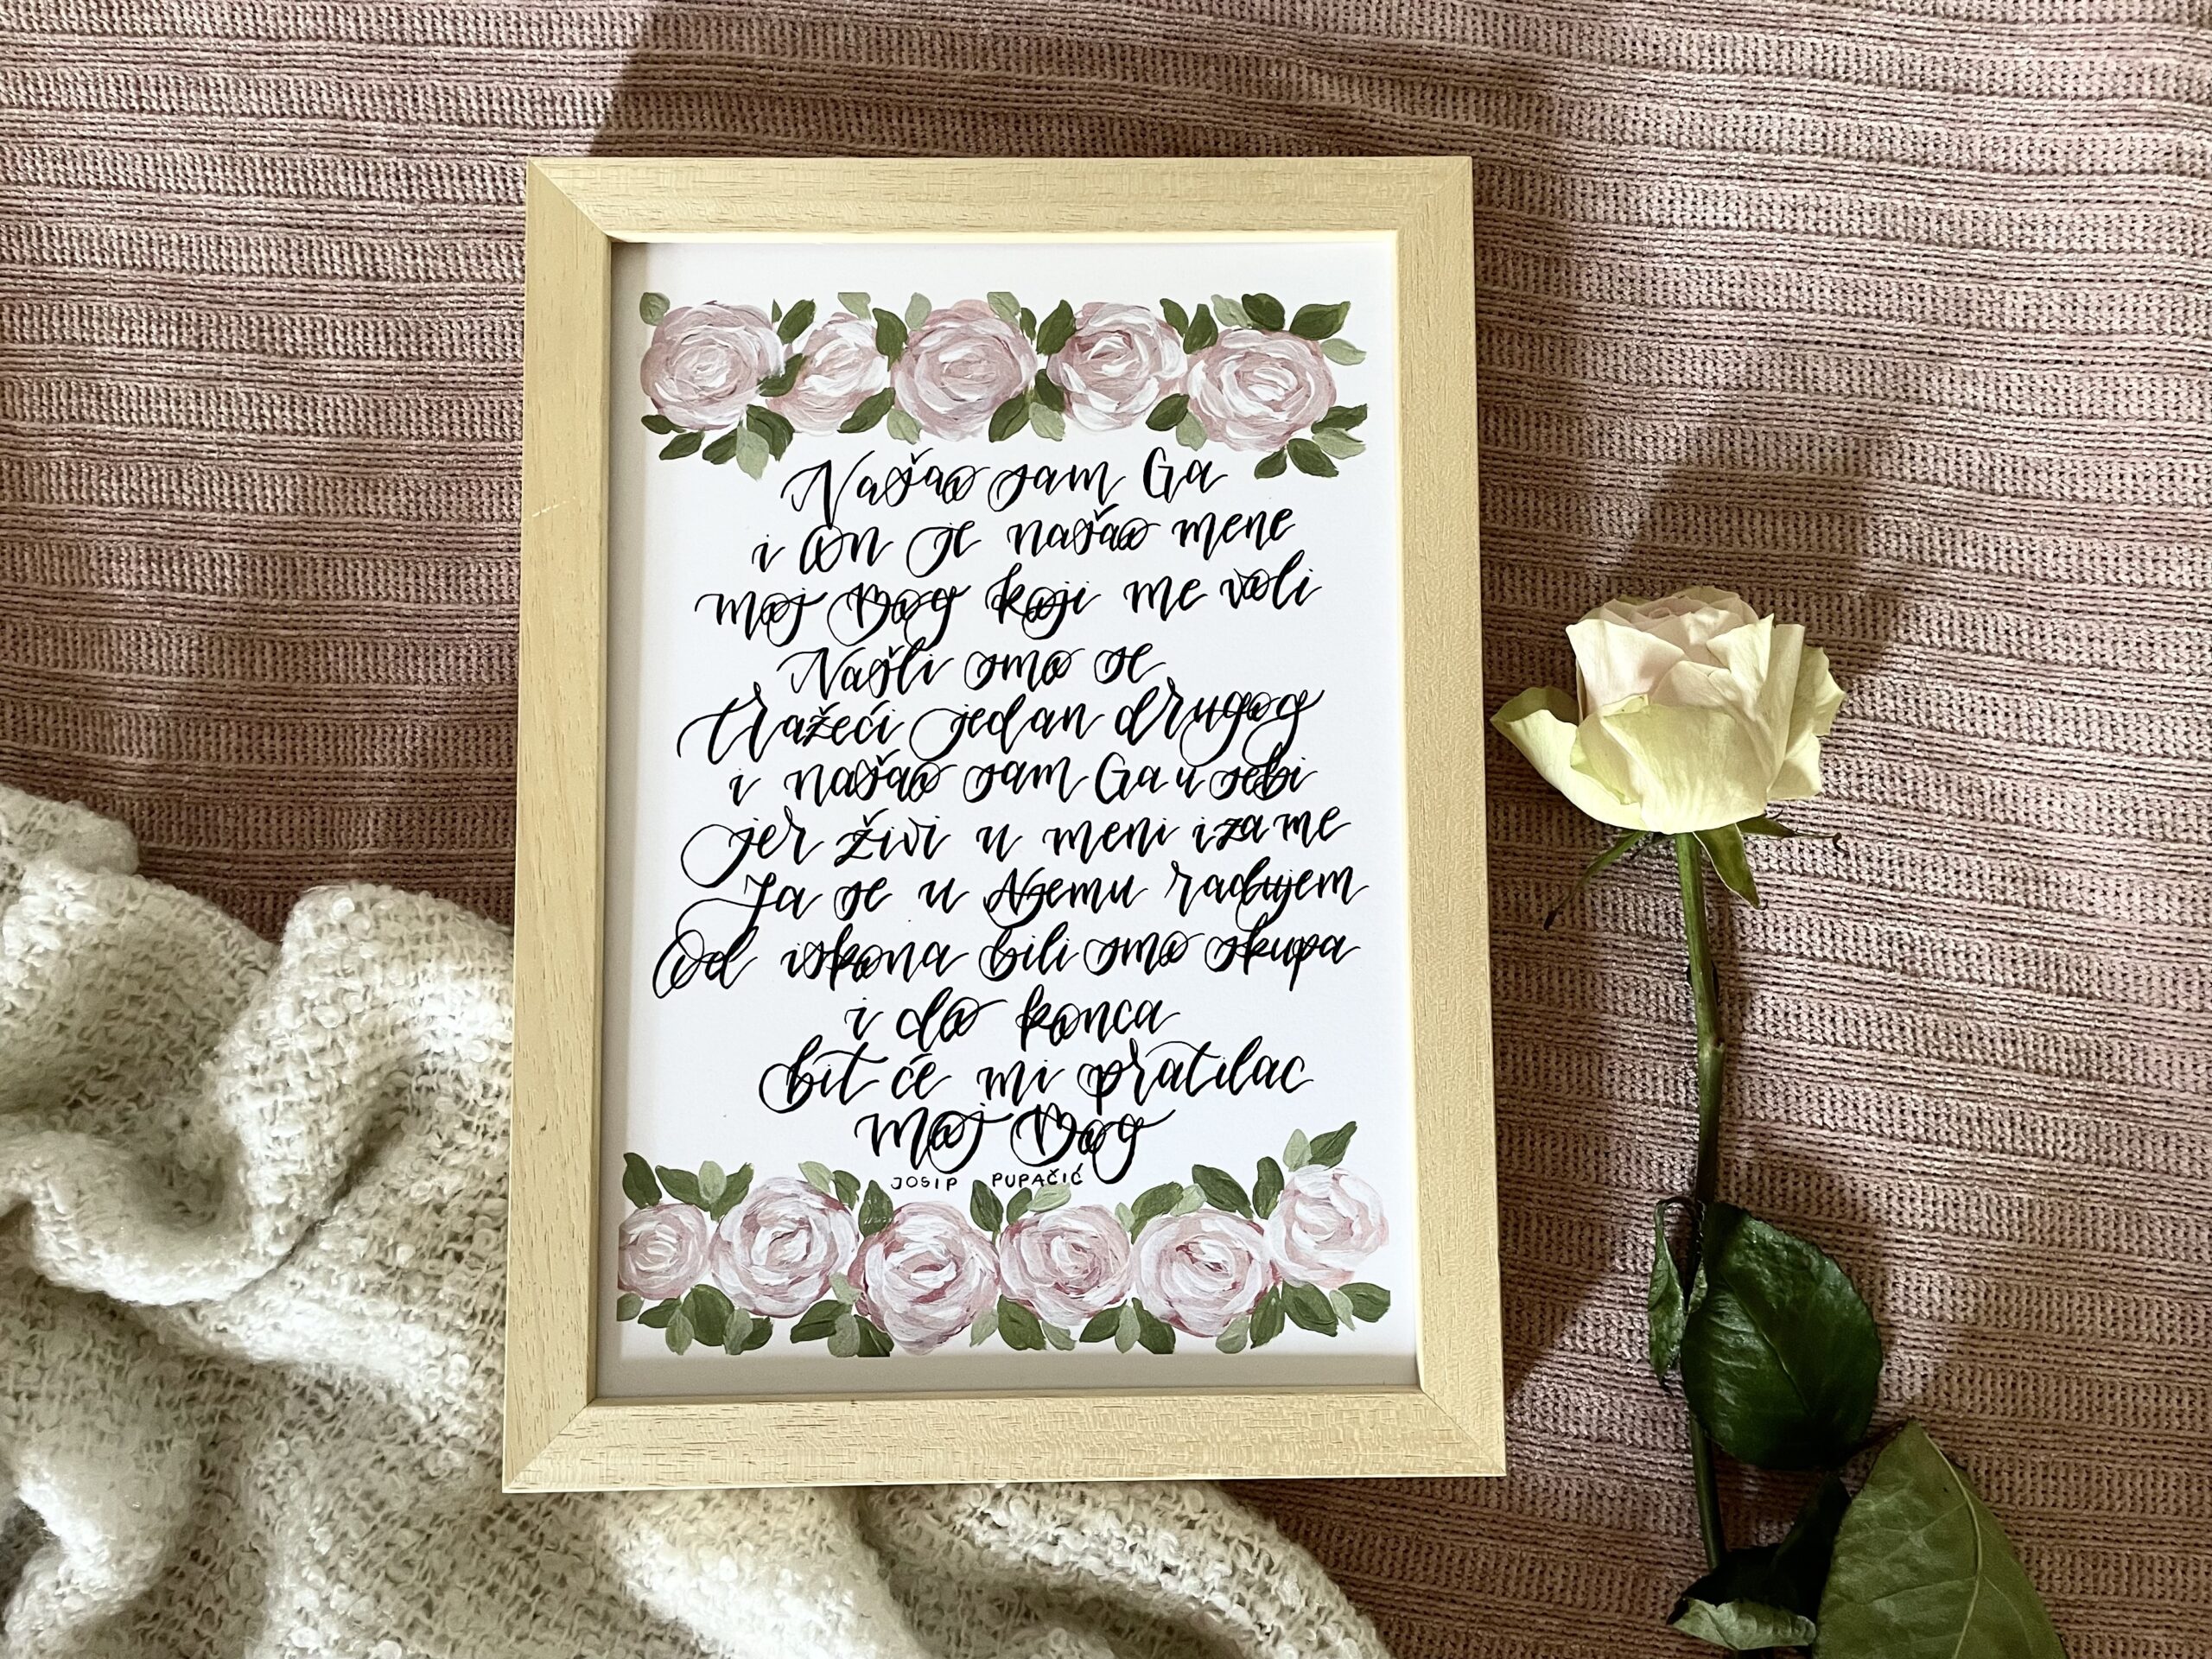 Našao sam Ga
i On je našao mene
moj Bog koji me voli
Našli smo se
tražeći jedan drugog
i našao sam Ga u sebi
jer živi u meni i za me
Ja se u Njemu radujem
Od iskona bili smo skupa
i do konca
bit će mi pratilac
Moj Bog
JOSIP PUPAČIĆ